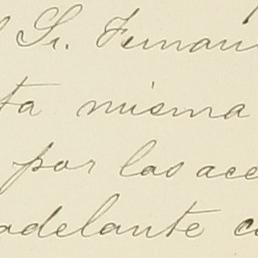 Sr. Fernan
ta misma
por las ace
adelante c